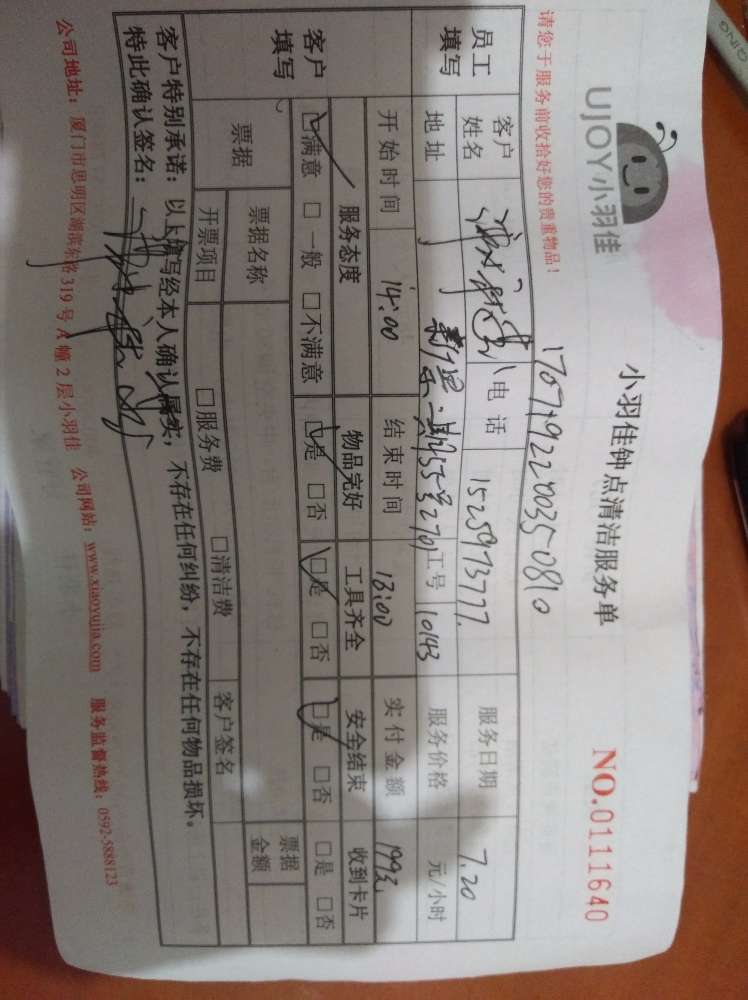 UJOY小羽佳
小羽佳钟点清洁服务单
NO.0111640
请您于服务前收拾好您的贵重物品!
1707192200350810
员工填写
客户姓名
电话 1525973777
服务日期 7.20
地址
工号 10143
服务价格 元/小时
开始时间 14:00 结束时间 18:00 实付金额
客户填写
服务态度 物品完好 工具齐全 安全结束 收到卡片
□满意 □一般 □不满意 □是 □否 □是 □否 □是 □否 □是 □否
票据
票据名称
票据金额
开票项目 □服务费 □清洁费 客户签名
客户特别承诺:以上填写经本人确认属实;不存在任何纠纷,不存在任何物品损坏。
特此确认签名:
公司地址:厦门市思明区湖滨东路319号A幢2层小羽佳 公司网站:www.xiaoyujia.com 服务监督热线:0592-5888123
QING